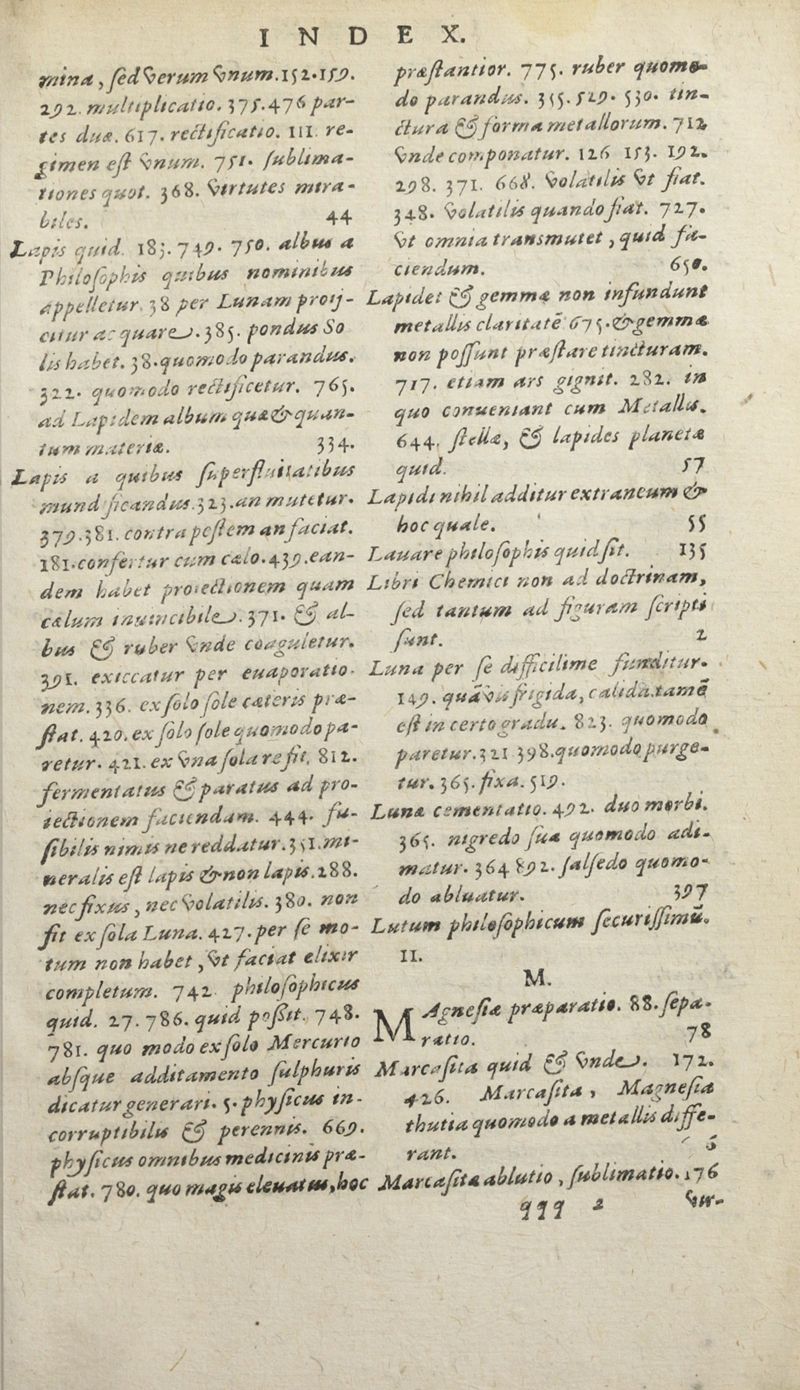 INDEX.
mina, sed verum vnum. 152. 159.
292. multiplicatio. 375. 476 par-
tes duæ. 617. rectificatio. 111. re-
gimen est vnum. 751. sublima-
tiones quot. 368. virtutes mira-
biles. 44
Lapis quid. 183. 749. 750. albus a
Philosophis quibus nominibus
appelletur. 38 per Lunam proij-
citur ac quare. 385. pondus So
lis habet. 38. quomodo parandus.
322. quomodo rectificetur. 765.
ad Lapidem album quæ & quan-
tum materiæ. 334.
Lapis a quibus superfluitatibus
mundificandus. 323. an mutetur.
379. 381. contra pestem an faciat.
181. confertur cum cælo. 439. ean-
dem habet proiectionem quam
cælum inuincibile. 371. & al-
bus & ruber vnde coaguletur.
391. exiccatur per euaporatio-
nem. 336. ex solo sole cæteris præ-
stat. 420. ex solo sole quomodo pa-
retur. 421. ex vna sola re fit. 812.
fermentatus & paratus ad pro-
iectionem faciendam. 444. fu-
sibilis nimis ne reddatur. 351. mi-
neralis est lapis & non lapis. 288.
nec fixus, nec volatilis. 380. non
fit ex sola Luna. 427. per se mo-
tum non habet, vt faciat elixir
completum. 742. philosophicus
quid. 27. 786. quid possit. 748.
781. quo modo ex solo Mercurio
absque additamento sulphuris
dicatur generari. 5. physicus in-
corruptibilis & perennis. 669.
physicus omnibus medicinis præ-
stat. 780. quo magis eleuatus, hoc
præstantior. 775. ruber quomo-
do parandus. 355. 529. 530. tin-
ctura & forma metallorum. 712
vnde componatur. 126 153. 192.
298. 371. 668. volatilis vt fiat.
348. volatilis quando fiat. 727.
vt omnia transmutet, quid fa-
ciendum. 650.
Lapides & gemmæ non infundunt
metallis claritatē 675. & gemmæ
non possunt præstare tincturam.
717. etiam ars gignit. 282. in
quo conueniant cum Metallis.
644. stellæ, & lapides planetæ
quid. 57
Lapidi nihil additur extraneum &
hoc quale. 55
Lauare philosophis quid sit. 135
Libri Chemici non ad doctrinam,
sed tantum ad figuram scripti
sunt. 2
Luna per se difficilime funditur.
149. quāvis frigida, calida tamē
est in certo gradu. 823. quomodo
paretur. 321 398. quomodo purge-
tur. 365. fixa. 519.
Lunæ cementatio. 492. duo morbi.
365. nigredo sua quomodo adi-
matur. 364 892. salsedo quomo-
do abluatur. 397
Lutum philosophicum securissimū.
II.
M.
MAgnesiæ præparatio. 88. sepa-
ratio. 78
Marcasita quid & vnde. 172.
426. Marcasita, Magnesia
thutia quomodo a metallis diffe-
rant.
Marcasitæ ablutio, sublimatio. 176
qqq 2 Vir-